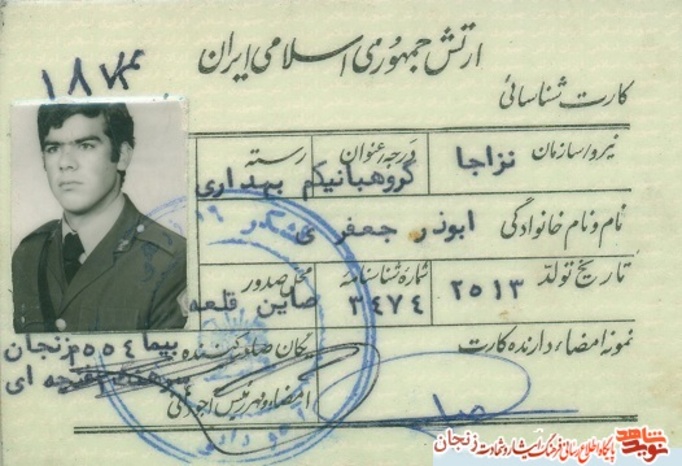 ارتش جمهوری اسلامی ایران
کارت شناسائی
نیرو/سازمان نزاجا درجه/عنوان گروهبانیکم رسته بهداری
نام و نام خانوادگی ابوذر جعفری
تاریخ تولد ۲۵۱۳ شماره شناسنامه ۳۴۷۴ محل صدور صاین قلعه
نمونه امضاء دارنده کارت
یگان صادر کننده بیما ۵۵۴ زنجان
امضاء و مهر رئیس اجرائی
نوید شاهد
پایگاه اطلاع رسانی فرهنگ ایثار و شهادت زنجان